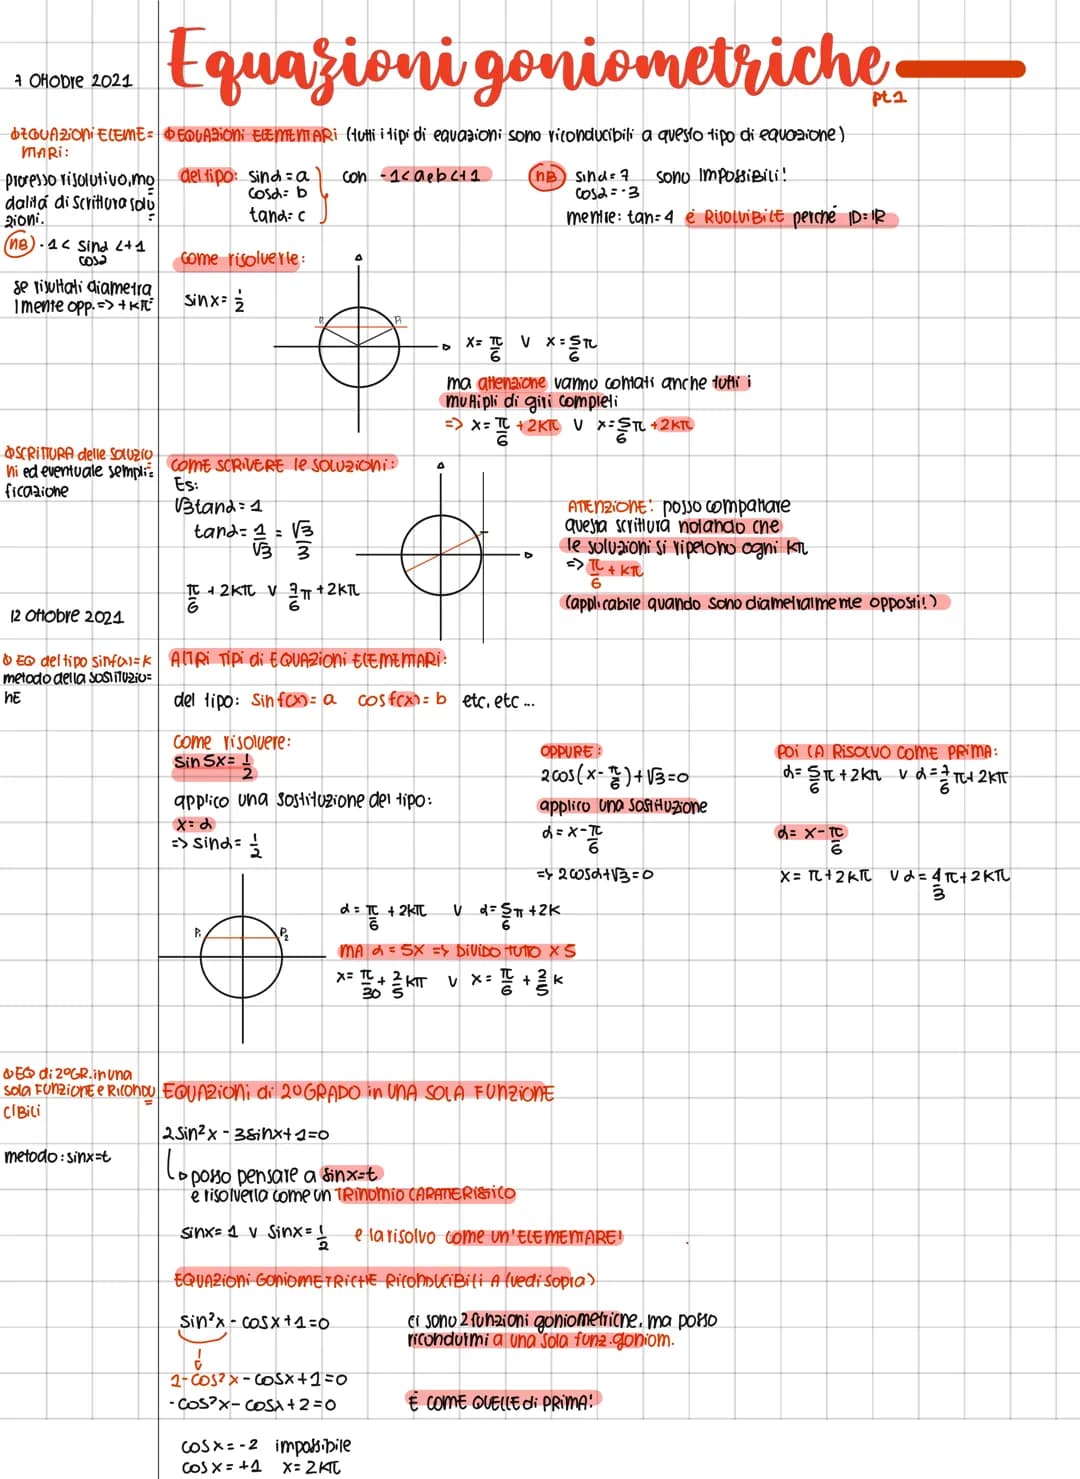 Equazioni goniometriche
pt.1
7 Ottobre 2021
EQUAZIONI ELEME=
MARI:
processo risolutivo, mo
dalità di scrittura solu
zioni.
NB · -1< sinα <+1
cosα
se risultati diametra
lmente opp. => +kπ
EQUAZIONI ELEMEMARI (tutti i tipi di equazioni sono riconducibili a questo tipo di equazione)
del tipo: sinα = a
cosα = b
tanα = c
con -1< a e b <+1
NB sinα = 7 sono IMPOSSIBILI!
cosα = -3
mentre: tan = 4 è RISOLVIBILE perché ID=IR
come risolverle:
sinx = 1/2
x = π/6 v x = 5/6π
ma attenzione vanno contati anche tutti i
multipli di giri completi
=> x = π/6 + 2kπ v x = 5/6π + 2kπ
SCRITTURA delle SOLUZIO
NI ed eventuale sempli=
ficazione
COME SCRIVERE le SOLUZIONI:
Es:
√3tanα = 1
tanα = 1/√3 = √3/3
π/6 + 2kπ v 7/6π + 2kπ
ATTENZIONE: posso compattare
questa scrittura notando che
le soluzioni si ripetono ogni kπ
=> π/6 + kπ
(applicabile quando sono diametralmente opposti!)
12 Ottobre 2021
EQ del tipo sinf(x)=k
metodo della SOSTITUZIO=
NE
ALTRI TIPI di EQUAZIONI ELEMEMARI:
del tipo: sinf(x) = a cosf(x) = b etc, etc ...
come risolvere:
sin5x = 1/2
applico una sostituzione del tipo:
x = α
=> sinα = 1/2
P₁ P₂
α = π/6 + 2kπ v α = 5/6π + 2k
MA α = 5x => DIVIDO TUTO x 5
x = π/30 + 2/5 kπ v x = π/6 + 2/5 k
OPPURE:
2cos(x - π/6) + √3 = 0
applico una SOSTITUZIONE
α = x - π/6
=> 2cosα + √3 = 0
POI LA RISOLVO COME PRIMA:
α = 5/6π + 2kπ v α = 7/6π + 2kπ
α = x - π/6
x = π + 2kπ v α = 4/3π + 2kπ
EQ di 2°GR. in una
sola FUNZIONE e RICONDU
CIBILI
EQUAZIONI di 2°GRADO in UNA SOLA FUNZIONE
2sin²x - 3sinx + 1 = 0
metodo: sinx=t
posso pensare a sinx=t
e risolverla come un TRINOMIO CARATTERISTICO
sinx = 1 v sinx = 1/2 e la risolvo come un'ELEMENTARE!
EQUAZIONI GONIOMETRICHE RICONDUCIBILI A (vedi sopra)
sin²x - cosx + 1 = 0
ci sono 2 funzioni goniometriche, ma posso
ricondurmi a una sola funz. goniom.
1-cos²x - cosx + 1 = 0
-cos²x - cosx + 2 = 0
È COME QUELLE di PRIMA!
cosx = -2 impossibile
cosx = +1 x = 2kπ